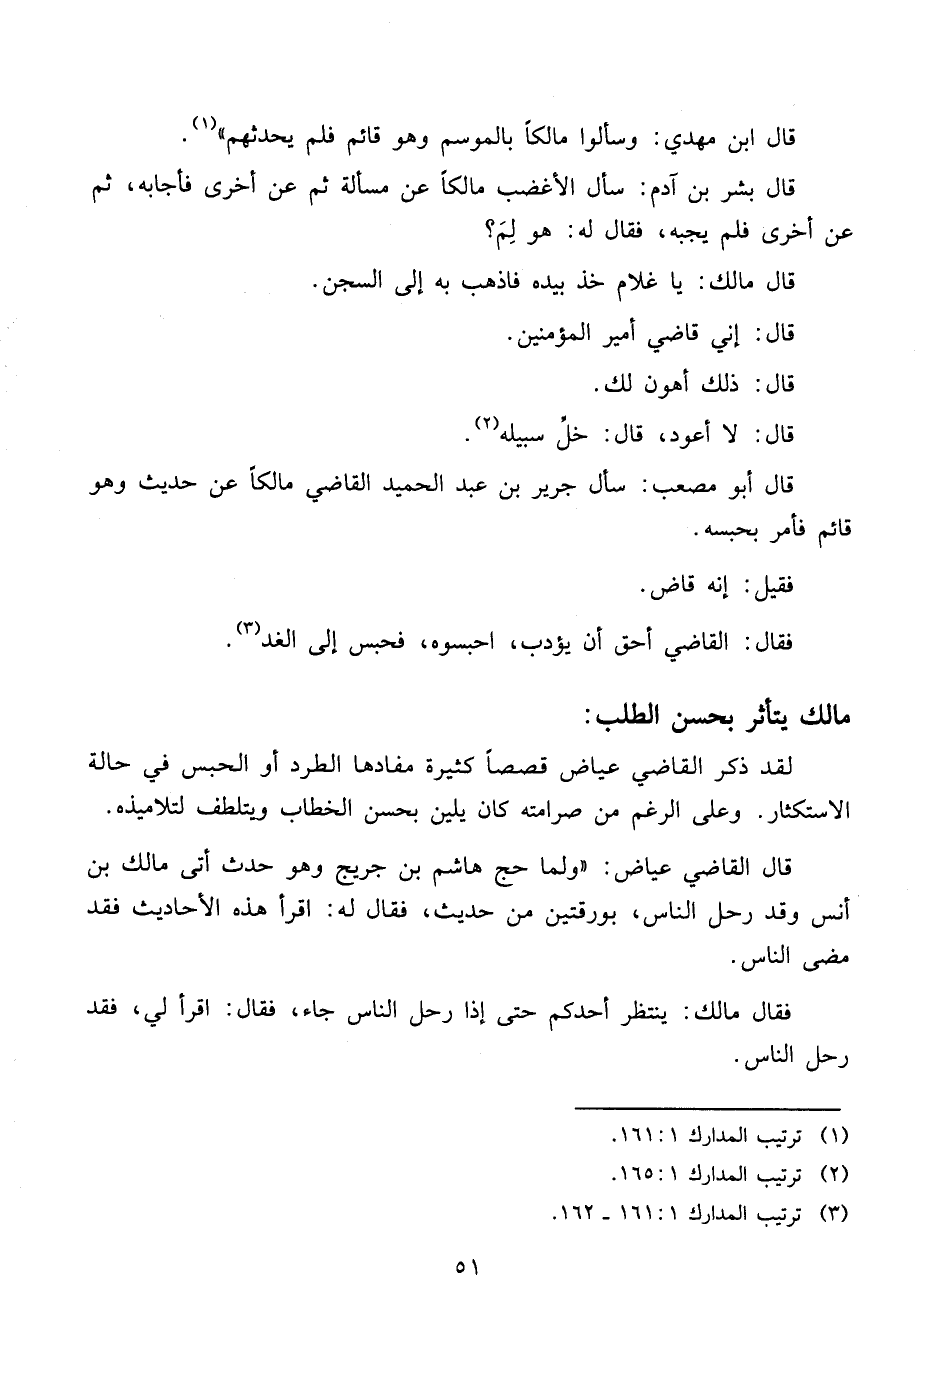 قال ابن مهدي: وسألوا مالكاً بالموسم وهو قائم فلم يحدثهم»(١).
قال بشر بن آدم: سأل الأغضب مالكاً عن مسألة ثم عن أخرى فأجابه، ثم
عن أخرى فلم يجبه، فقال له: هو لِمَ؟
قال مالك: يا غلام خذ بيده فاذهب به إلى السجن.
قال: إني قاضي أمير المؤمنين.
قال: ذلك أهون لك.
قال: لا أعود، قال: خلِّ سبيله(٢).
قال أبو مصعب: سأل جرير بن عبد الحميد القاضي مالكاً عن حديث وهو
قائم فأمر بحبسه.
فقيل: إنه قاض.
فقال: القاضي أحق أن يؤدب، احبسوه، فحبس إلى الغد(٣).
مالك يتأثر بحسن الطلب:
لقد ذكر القاضي عياض قصصاً كثيرة مفادها الطرد أو الحبس في حالة
الاستكثار. وعلى الرغم من صرامته كان يلين بحسن الخطاب ويتلطف لتلاميذه.
قال القاضي عياض: «ولما حج هاشم بن جريج وهو حدث أتى مالك بن
أنس وقد رحل الناس، بورقتين من حديث، فقال له: اقرأ هذه الأحاديث فقد
مضى الناس.
فقال مالك: ينتظر أحدكم حتى إذا رحل الناس جاء، فقال: اقرأ لي، فقد
رحل الناس.
(١) ترتيب المدارك ١:١٦١.
(٢) ترتيب المدارك ١:١٦٥.
(٣) ترتيب المدارك ١:١٦١ - ١٦٢.
٥١